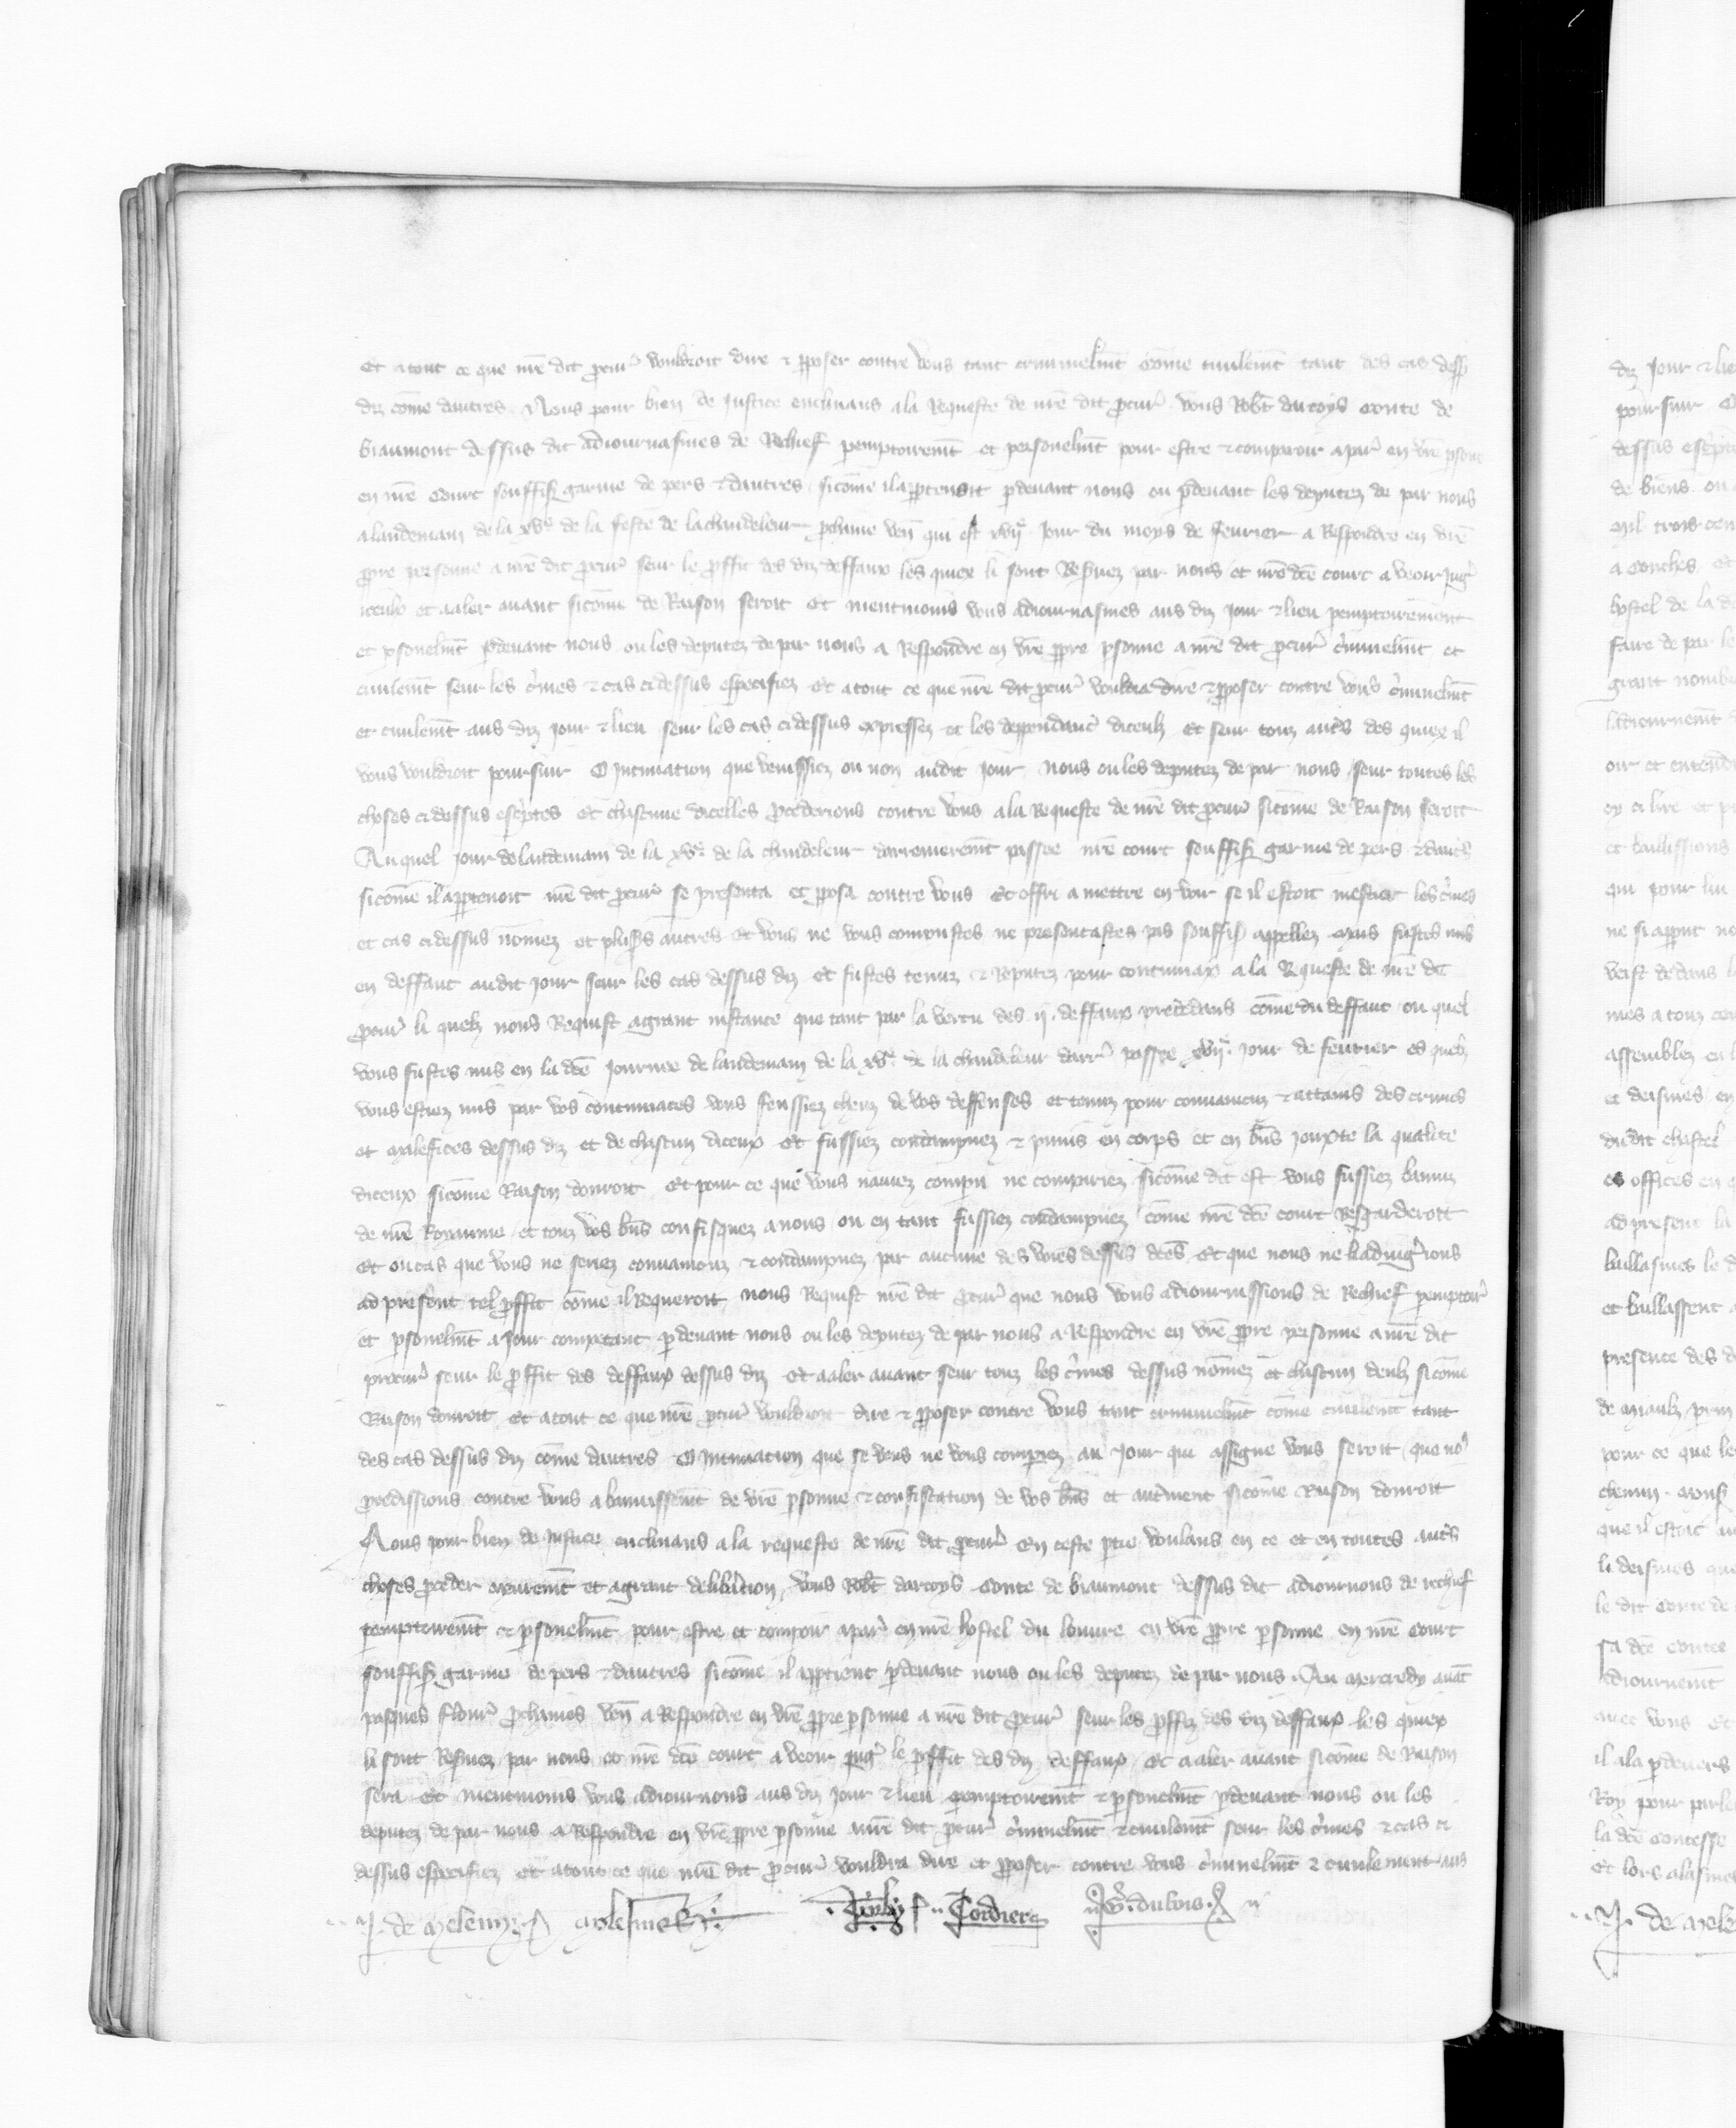 Et a tout ce que nr̃e dit ꝓcur̉ vouldroit dire ⁊ ꝓposer contre vous tant criminelmẽt cõme ciuilemẽt tant des cas dess9
diz cõme dautres Nous pour bien de Justice enclinans a la Requeste de nr̃e dit ꝓcur̉ vous Rob̃t dartoys Conte de
biaumont dessus dit adiournasmes de Rechief ꝑemptoiremẽt et personelmẽt pour estre ⁊ comparoir a par̉ en vr̃e ꝑsone
en nr̃e Court souffis̃ garnie de pers ⁊ dautres sicõme il apꝑtenoit ꝑdeuant nous ou ꝑdeuant les deputez de par nous
a landemain de la xve de la feste de la chandeleur ꝓchaine ven̉ qui est xvije Jour du moys de feurier a Respondre en vr̃e
ꝓpre personne a nr̃e dit ꝓcur̉ seur le ꝓffit des diz deffaux les quiex li sont Reseruez par nous et nr̃e dc̃e court a veoir Jug̉
iceulx et a aler auant sicõme de Raison seroit Et nientmoins vous adiournasmes aus diz Jour ⁊ lieu ꝑemptoirement
et ꝑsonelmẽt ꝑdeuant nous ou les deputez de par nous a Respondre en vr̃e ꝓpre ꝑsonne a nr̃e dit ꝓcur̉ c̉minelmẽt et
ciuilemẽt seur les c̉mes ⁊ cas ci dessus especifiez Et a tout ce que nr̃e dit ꝓcur̉ vouldra dire ⁊ ꝓposer contre vous c̉minelmẽt
et ciuilemẽt aus diz Jour ⁊ lieu seur les cas ci dessus expressez et les dependanc̉ diceulz Et seur touz aut̉s des quiex il
vous vouldroit poursuir O Intimation que venissiez ou non audit Jour nous ou les deputez de par nous seur toutes les
choses ci dessus esc̉ptes Et chascune dicelles ꝓcederions contre vous a la Requeste de nr̃e dit ꝓcur̉ sicõme de Raison seroit
Au quel Jour de landemain de la xve de la chandeleur darrenieremẽt passee nr̃e court souffis̃ garnie de pers ⁊ daut̉s
sicõme il apꝑtenoit nr̃e dit ꝓcur̉ se presenta et ꝓposa contre vous Et offri a mettre en voir se il estoit mestier les c̉mes
et cas ci dessus nõmez et plus̉s autres Et vous ne vous comparustes ne presentastes pas souffis̃ appellez Mais fustes mis
en deffaut audit Jour seur les cas dessus diz Et fustes tenuz ⁊ Reputez pour contumax a la Requeste de nr̃e dit
ꝓcur̉ li quelx nous Requist a grant instance que tant par la vertu des ij deffaux precedans cõme du deffaut ou quel
vous fustes mis en la dc̃e Journee de landemain de la xve de la chandeleur darr̉ passee xvije Jour de feurier es quelx
vous estiez mis par vos contumaces vous feussiez cheuz de vos deffenses et tenuz pour conuaincuz ⁊ attains des crimes
et malefices dessus diz et de chascun diceux Et fussiez condampnez ⁊ punis en corps et en bñs Jouxte la qualite
diceux sicõme Raison donroit Et pour ce que vous nauez comparu ne compariez sicõme dit est vous fussiez banniz
de nr̃e Royaume et touz vos bñs confisquez a nous ou en tant fussiez condampnez cõme nr̃e dc̃e court Resgarderoit
Et ou cas que vous ne seriez conuaincuz ⁊ condampnez par aucune des voies dessus dc̃es Et que nous ne li adiug̉ions
ad present tel ꝓffit cõme il Requeroit nous Requist nr̃e dit ꝓcur̉ que nous vous adiournissions de Rechief ꝑemptoir̉
et ꝑsonelmẽt a Jour competant ꝑdeuant nous ou les deputez de par nous a Respondre en vr̃e ꝓpre personne a nr̃e dit
procur̉ seur le ꝓffit des deffaux dessus diz Et a aler auant seur touz les c̉mes dessus nõmez et chascun deulz sicõme
Raison donroit Et a tout ce que nr̃e ꝓcur̉ vouldroit dire ⁊ ꝓposer contre vous tant criminelmẽt cõme ciuilemẽt tant
des cas dessus diz cõme dautres O Intimacion que se vous ne vous compariez au Jour qui assigne vous seroit que no9
ꝓcedissions contre vous a bannissemẽt de vr̃e ꝑsonne ⁊ confiscation de vos bñs et aut̉ment sicõme Raison donroit
Nous pour bien de Justice enclinans a la requeste de nr̃e dit ꝓcur̉ En ceste ꝑtie voulans en ce et en toutes aut̉s
choses ꝓceder meuremẽt et a grant delibãtion vous Rob̃t dartoys Conte de biaumont dessus dit adiournons de rechief
ꝑemptoiremẽt ⁊ ꝑsonelmẽt pour estre et compoir a par̉ en nr̃e hostel du louure en vr̃e ꝓpre ꝑsonne en nr̃e Court
souffis̃ garnie de pers ⁊ dautres sicõme il apꝑtient ꝑdeuant nous ou les deputez de par nous Au Mercredy auãt
pasques flour̉ ꝓchaines ven̉ a Respondre en vr̃e ꝓpre ꝑsonne a nr̃e dit ꝓcur̉ seur les ꝓffiz des diz deffaux les quiex
li sont Reseruez par nous et nr̃e dc̃e court a veoir Jug̉ le ꝓffit des diz deffaux Et a aler auant sicõme de Raison
sera Et nientmoins vous adiournons aus diz Jour ⁊ lieu ꝑemptoiremẽt ⁊ ꝑsonelmẽt ꝑdeuant nous ou les
deputez de par nous a Respondre en vr̃e ꝓpre ꝑsonne a nr̃e dit ꝓcur̉ c̉minelmẽt ⁊ ciuilemẽt seur les c̉mes ⁊ cas ci
dessus especifiez Et a tout ce que nr̃e dit ꝓcur̉ vouldra dire et ꝓposer contre vous c̉minelmẽt ⁊ ciuilement aus
J. de Meleun Cordier G. dubois